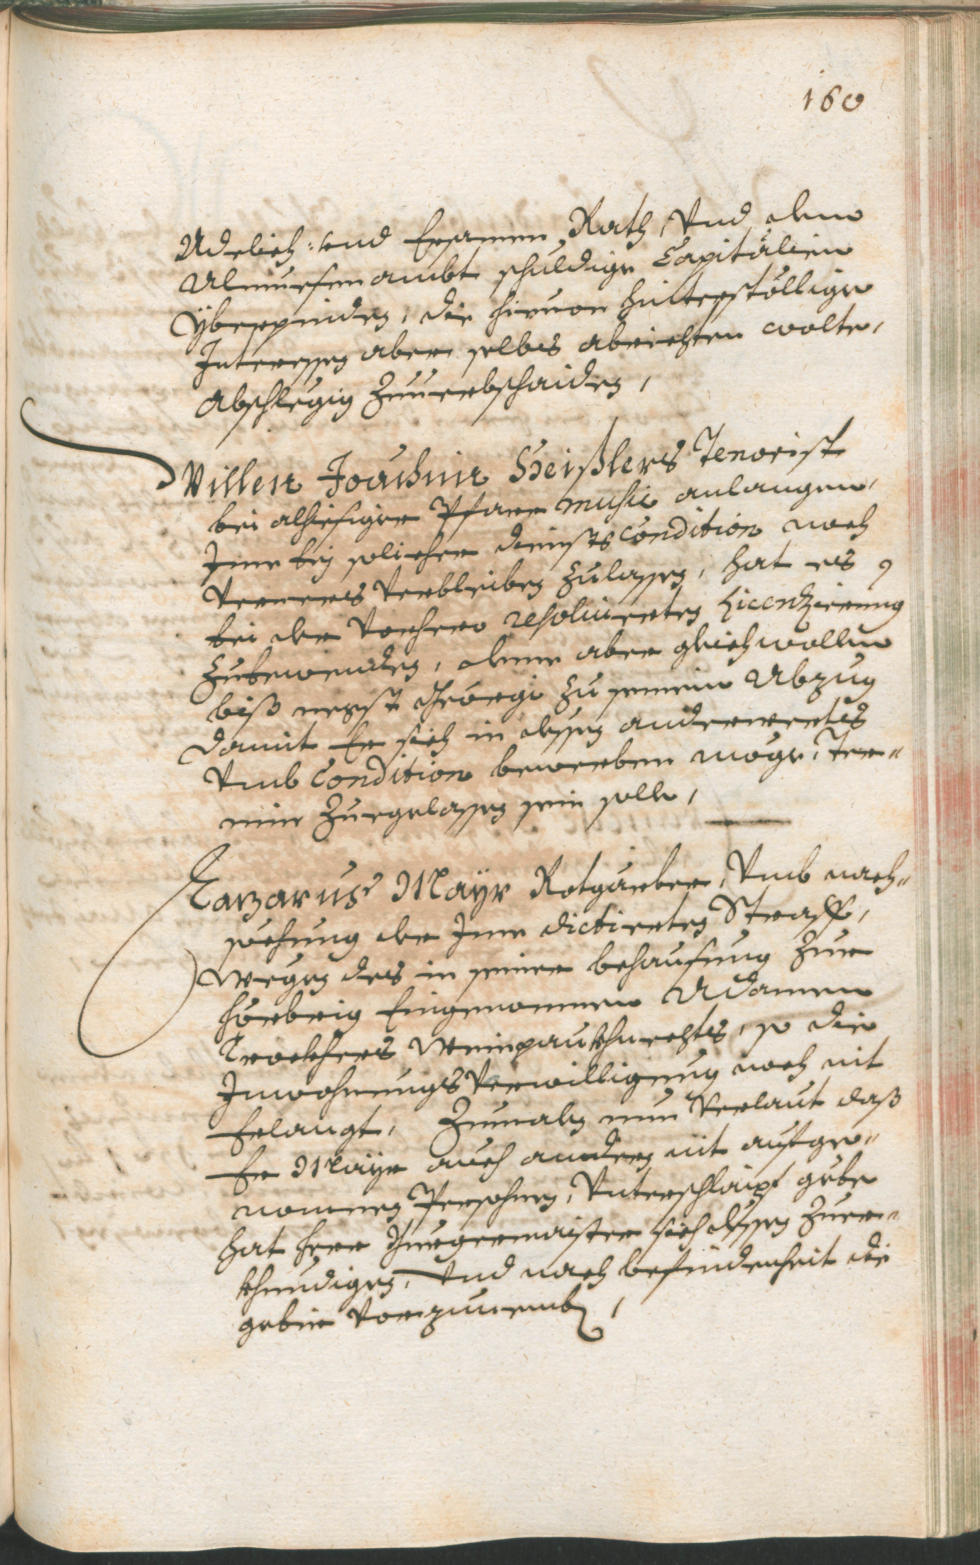 160
Adelich: und Ersamen Rath, Vnd dem
Allmuesenambt schuldige Capitalien
yberpinden, die hievon hinterstöllige
Interessen aber selbs abrichten wolte,
Abschlegig Zuuerbschaiden,
Willen Joachim Heißlers Tenorist
bei alhiesiger Pfarr music anlangen,
Ime bey solicher diensts Condition noch
verners verbleiben Zulassen, hat es
bei der vorhero resoluierten Licenzierung
Zubewenden, deme aber gleichwollen
biß negst Georgi Zu seinem Abzug
damit Er sich in dessen anderwerts
vmb Condition bewerben möge, Ter-
min Zuegelassen sein solle,
Lazarus Mayr Rotgärber, Vmb nach-
sechung der Ime dictierten Straff,
wegen des in seiner behausung Zur
hörberig Eingenommen Adamen
weinpaukhnechts, so die
Inwohnungs Verwilligung noch nit
Erlangt, Zumahlen nun Verlaut daß
Er Mayr auch andern nit aufgenommen
Persohnen, Vnterschlaipf gebe
hat Herr Burgermaister sich dessen Zuer-
khundigen, Vnd nach befündenheit die
gebür Vorzunemben,